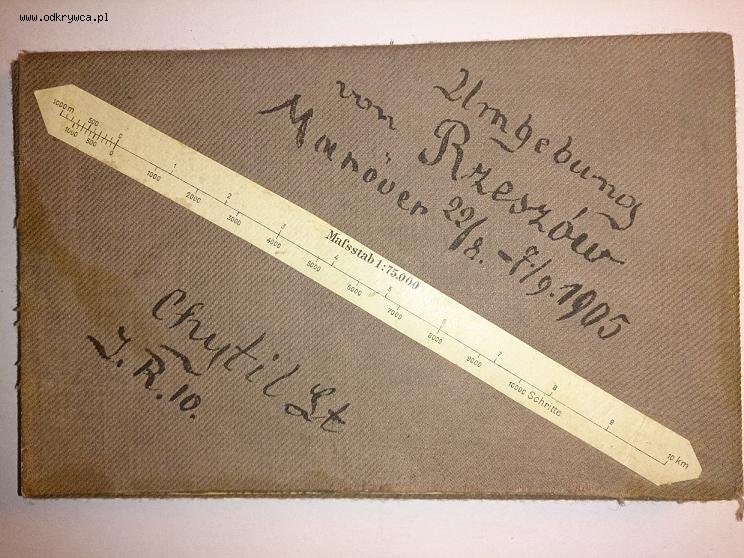 www.odkrywca.pl
Umgebung
von Rzeszów
Manöver 22/8. – 7/9. 1905
1000 m 500 0 1 2 3 4 5 6 7 8 9 10 km
Maſsstab 1:75.000
1000 500 0 1000 2000 3000 4000 5000 6000 7000 8000 9000 10000 Schritte
Chytil Lt
I. R. 10.